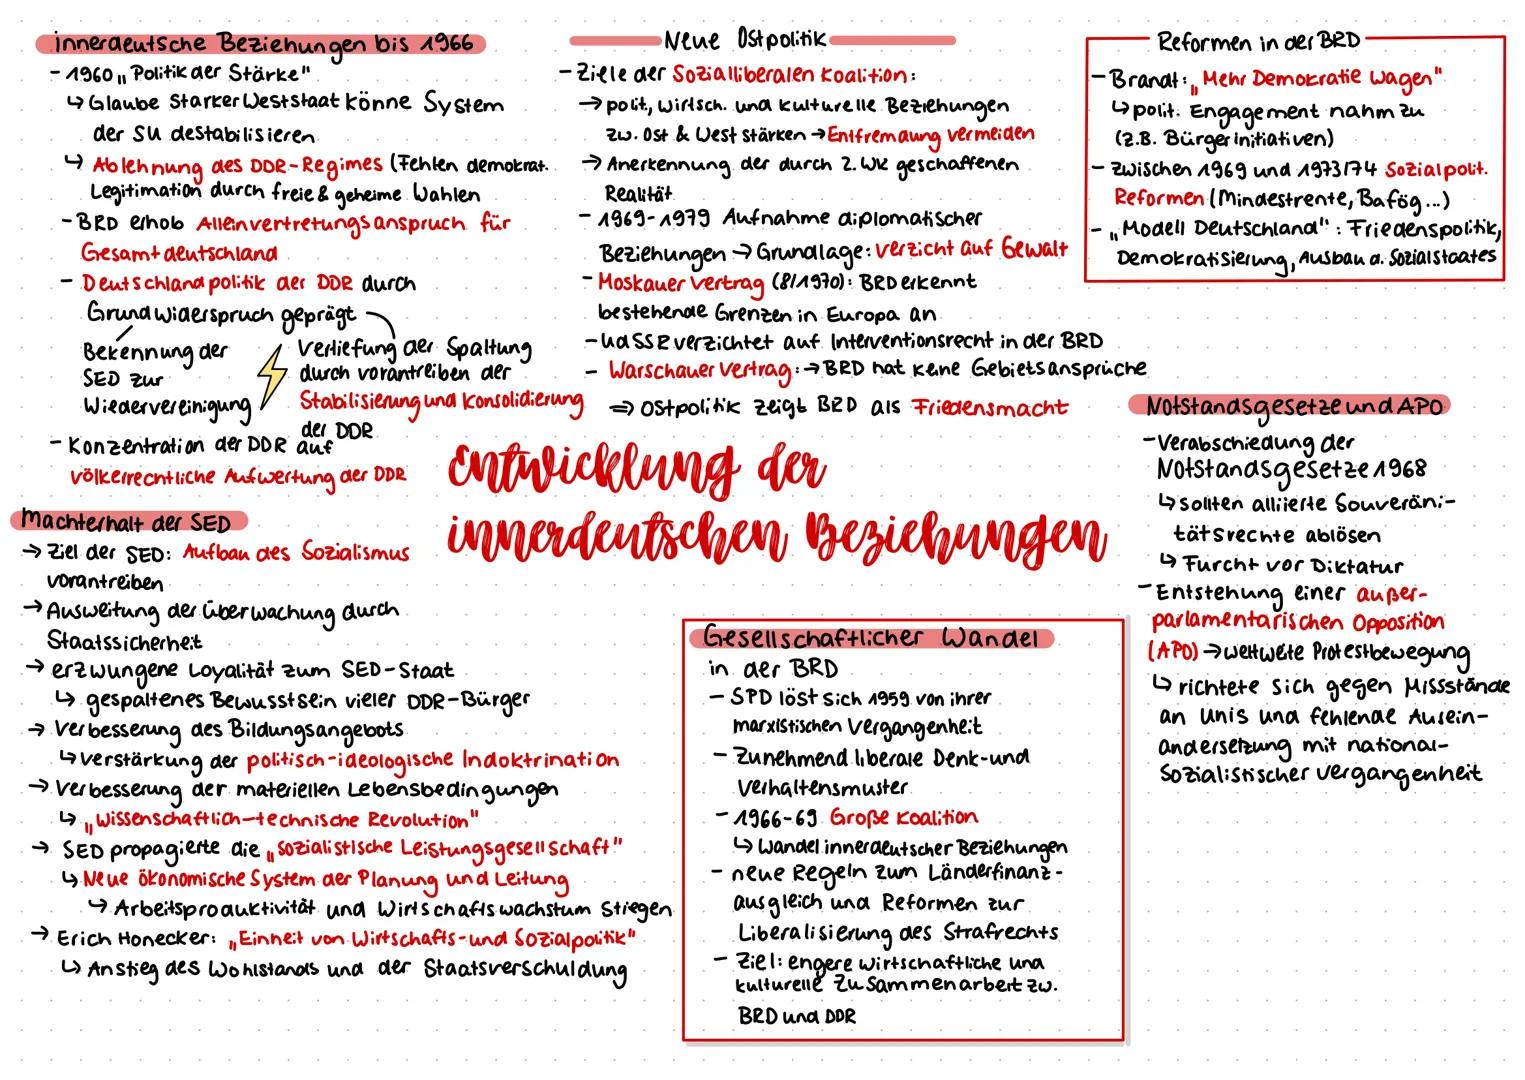 innerdeutsche Beziehungen bis 1966
- 1960 „Politik der Stärke"
↳ Glaube starker Weststaat könne System
der SU destabilisieren
↳ Ablehnung des DDR-Regimes (Fehlen demokrat.
Legitimation durch freie & geheime Wahlen
- BRD erhob Alleinvertretungsanspruch für
Gesamtdeutschland
- Deutschlandpolitik der DDR durch
Grundwiderspruch geprägt
Bekennung der
SED zur
Wiedervereinigung
Verliefung der Spaltung
durch vorantreiben der
Stabilisierung und Konsolidierung
der DDR
- Konzentration der DDR auf
völkerrechtliche Aufwertung der DDR
Machterhalt der SED
→ Ziel der SED: Aufbau des Sozialismus
vorantreiben
→ Ausweitung der Überwachung durch
Staatssicherheit
→ erzwungene Loyalität zum SED-Staat
↳ gespaltenes Bewusstsein vieler DDR-Bürger
→ Verbesserung des Bildungsangebots
↳ verstärkung der politisch-ideologische Indoktrination
→ Verbesserung der materiellen Lebensbedingungen
↳ „wissenschaftlich-technische Revolution"
→ SED propagierte die „sozialistische Leistungsgesellschaft"
↳ Neue ökonomische System der Planung und Leitung
↳ Arbeitsproduktivität und Wirtschaftswachstum stiegen
→ Erich Honecker: „Einheit von Wirtschafts- und Sozialpolitik"
↳ Anstieg des Wohlstands und der Staatsverschuldung
Neue Ostpolitik
- Ziele der Sozialliberalen Koalition:
→ polit., wirtsch. und kulturelle Beziehungen
zw. Ost & West stärken → Entfremdung vermeiden
→ Anerkennung der durch 2. WK geschaffenen
Realität
- 1969-1979 Aufnahme diplomatischer
Beziehungen → Grundlage: Verzicht auf Gewalt
- Moskauer Vertrag (8/1970): BRD erkennt
bestehende Grenzen in Europa an
- UdSSR verzichtet auf Interventionsrecht in der BRD
- Warschauer Vertrag: → BRD hat keine Gebietsansprüche
⇒ Ostpolitik zeigt BRD als Friedensmacht
Entwicklung der
innerdeutschen Beziehungen
Gesellschaftlicher Wandel
in der BRD
- SPD löst sich 1959 von ihrer
marxistischen Vergangenheit
- Zunehmend liberale Denk- und
Verhaltensmuster
- 1966-69 Große Koalition
↳ Wandel innerdeutscher Beziehungen
- neue Regeln zum Länderfinanz-
ausgleich und Reformen zur
Liberalisierung des Strafrechts
- Ziel: engere wirtschaftliche und
kulturelle Zusammenarbeit zw.
BRD und DDR
Reformen in der BRD
- Brandt: „Mehr Demokratie wagen"
↳ polit. Engagement nahm zu
(z.B. Bürgerinitiativen)
- zwischen 1969 und 1973/74 Sozialpolit.
Reformen (Mindestrente, Bafög...)
- „Modell Deutschland": Friedenspolitik,
Demokratisierung, Ausbau d. Sozialstaates
Notstandsgesetze und APO
- Verabschiedung der
Notstandsgesetze 1968
↳ sollten alliierte Souveräni-
tätsrechte ablösen
↳ Furcht vor Diktatur
- Entstehung einer außer-
parlamentarischen Opposition
(APO) → weltweite Protestbewegung
↳ richtete sich gegen Missstände
an Unis und fehlende Ausein-
andersetzung mit national-
sozialistischer Vergangenheit